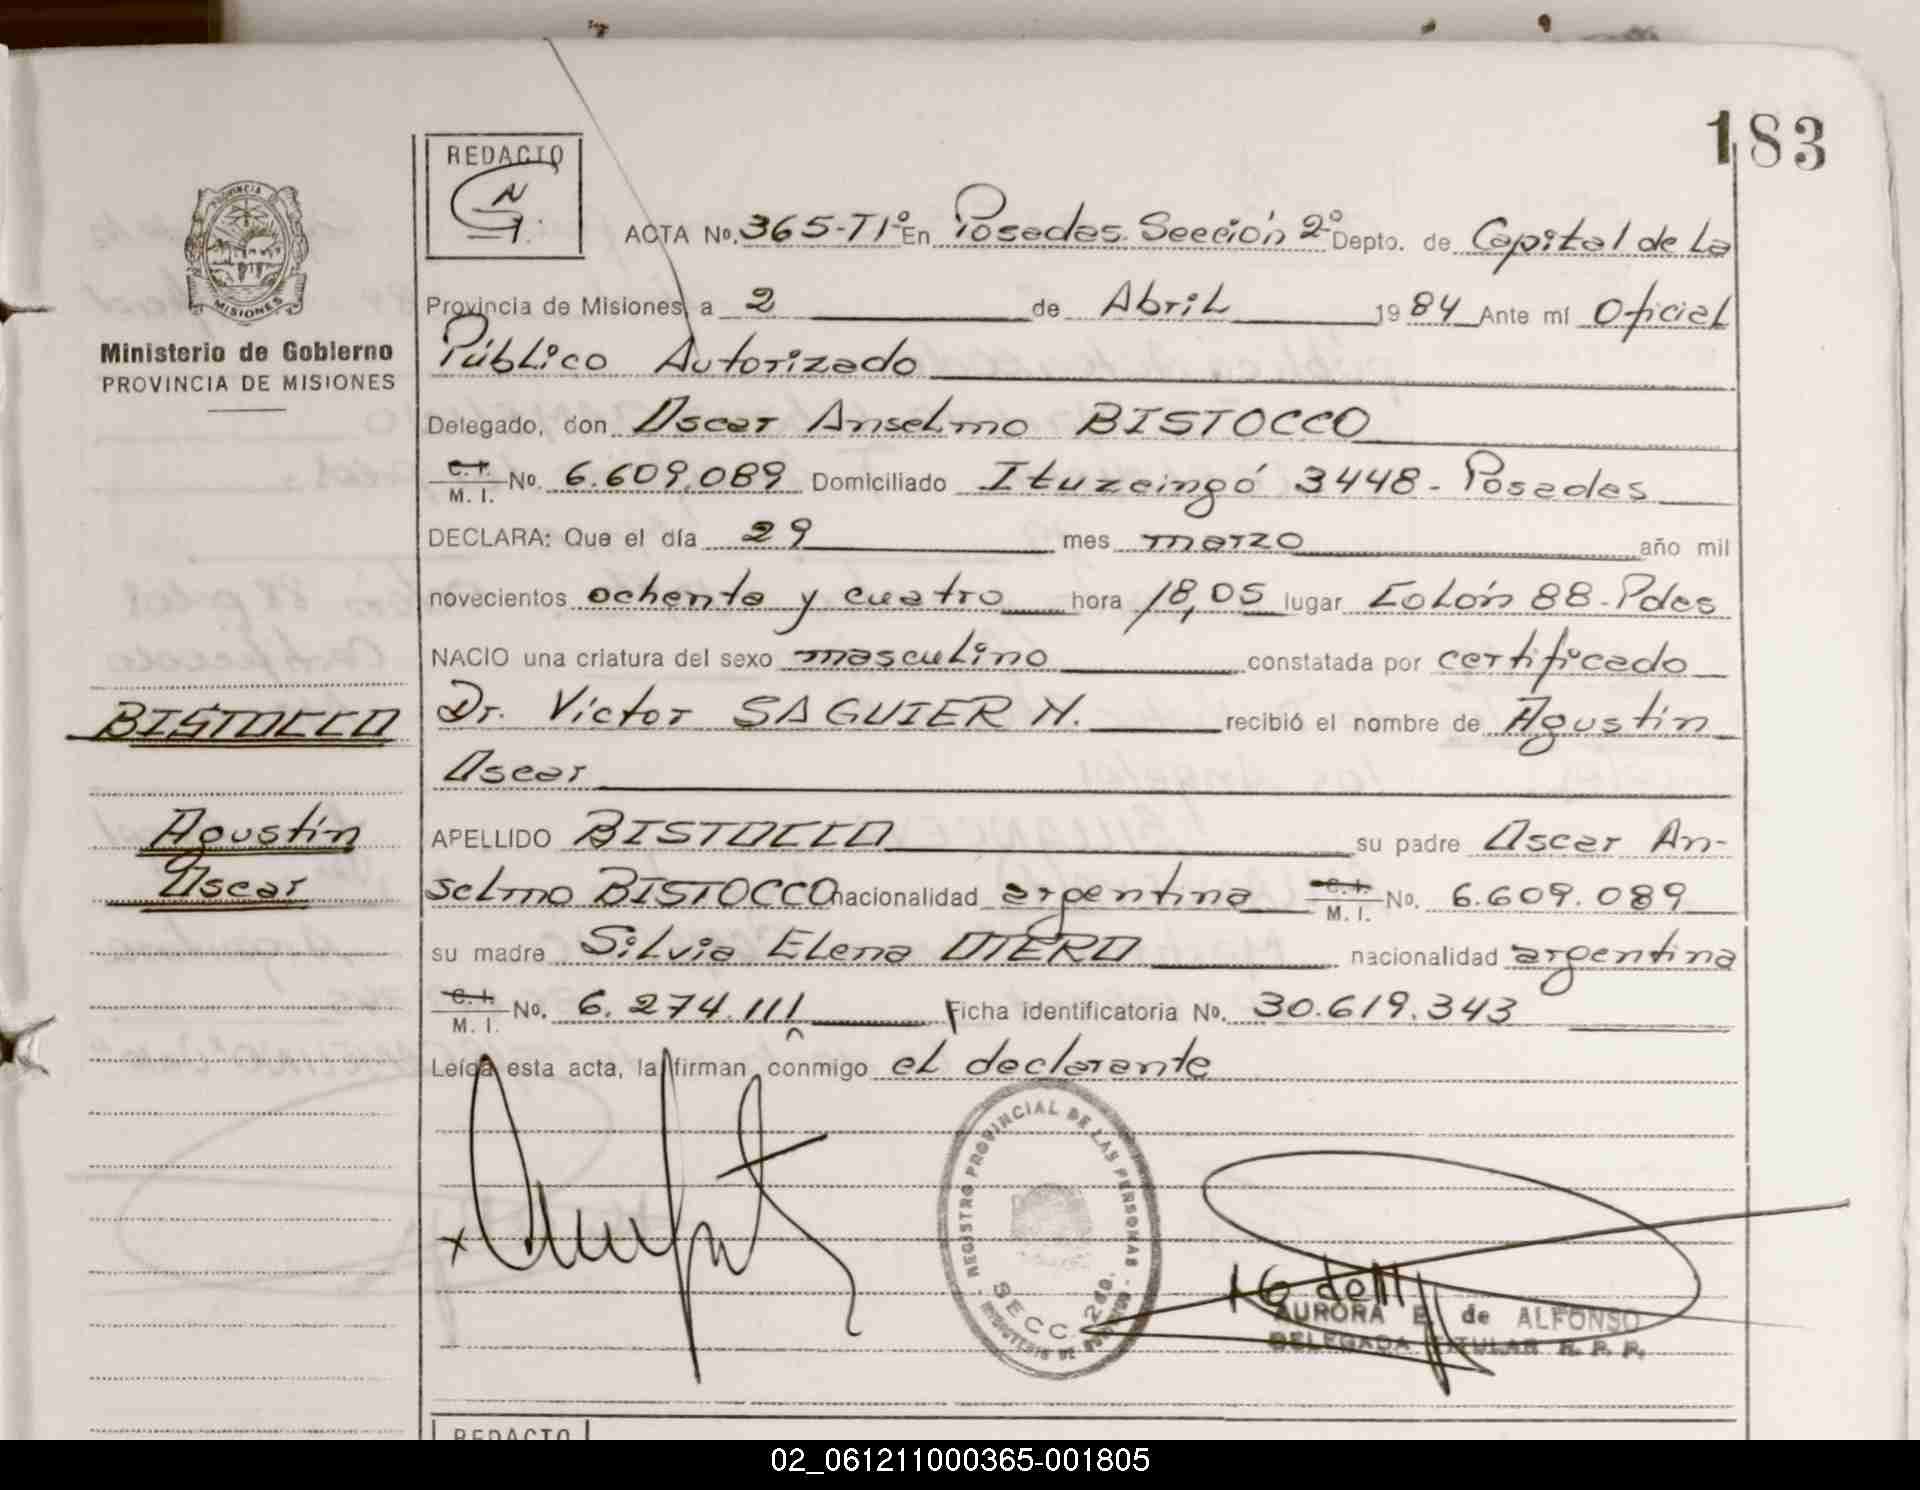 183
REDACTO
ACTA Nº. 365-T1º En Posadas. Sección 2º Depto. de Capital de La
Provincia de Misiones, a 2 de Abril 1984 Ante mí Oficial
Público Autorizado
Delegado, don Oscar Anselmo BISTOCCO
C. I.
M. I. Nº. 6.609.089 Domiciliado Ituzaingó 3448- Posadas
DECLARA: Que el día 29 mes marzo año mil
novecientos ochenta y cuatro hora 18,05 lugar Colón 88-Pdas
NACIO una criatura del sexo masculino constatada por certificado
Dr. Víctor SAGUIER M. recibió el nombre de Agustín
Oscar
APELLIDO BISTOCCO su padre Oscar An-
selmo BISTOCCO nacionalidad argentina C. I. M. I. Nº. 6.609.089
su madre Silvia Elena OTERO nacionalidad argentina
C. I.
M. I. Nº. 6.274.111 Ficha identificatoria Nº. 30.619.343
Leída esta acta, la firman conmigo el declarante
PROVINCIA
MISIONES
Ministerio de Gobierno
PROVINCIA DE MISIONES
BISTOCCO
Agustín
Oscar
REGISTRO PROVINCIAL DE LAS PERSONAS
SECC. 2da.
AURORA E. de ALFONSO
DELEGADA TITULAR R. P. P.
REDACTO
02_061211000365-001805